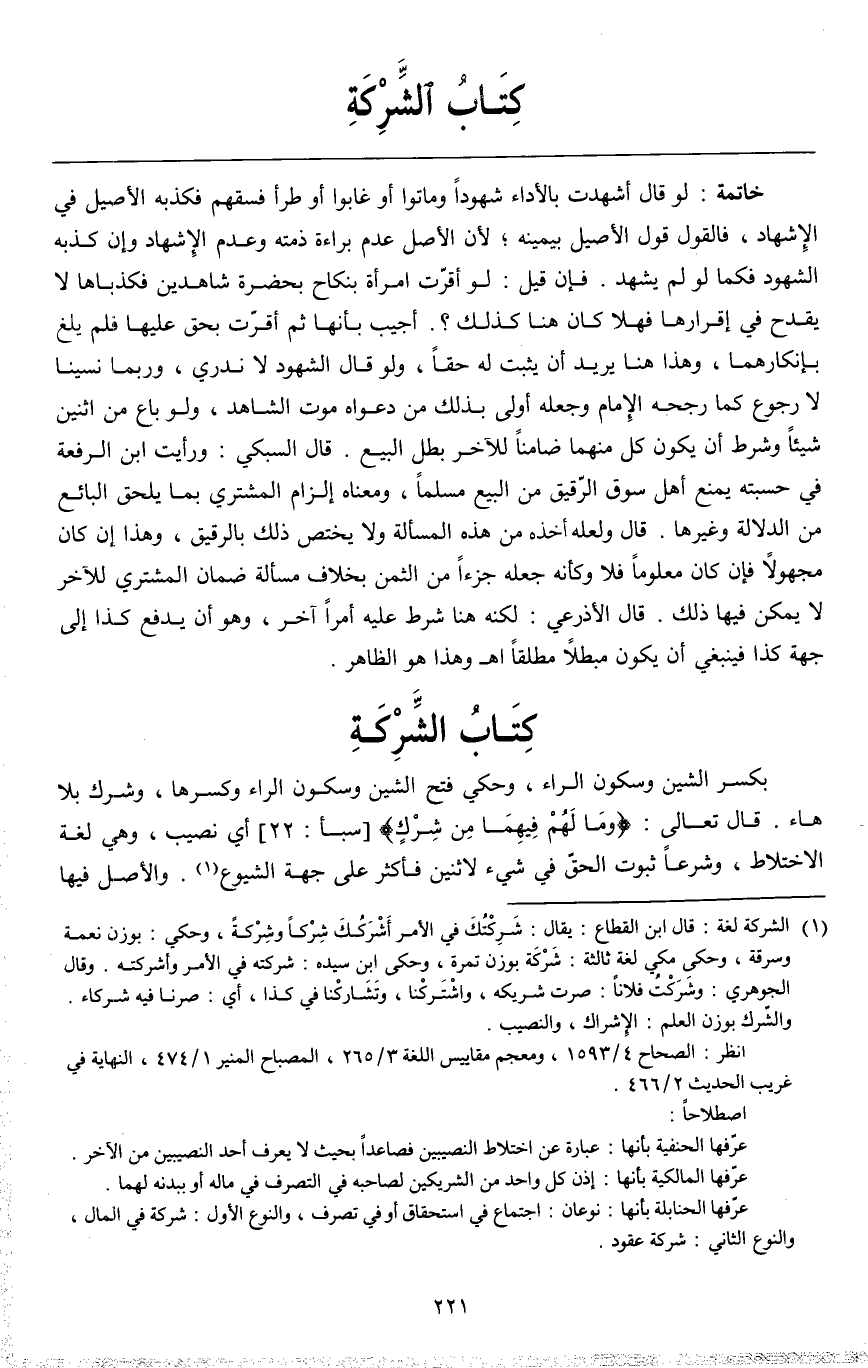 كِتَـابُ ٱلشَّرِكَةِ
خاتمة : لو قال أشهدت بالأداء شهوداً وماتوا أو غابوا أو طرأ فسقهم فكذبه الأصيل في
الإشهاد ، فالقول قول الأصيل بيمينه ؛ لأن الأصل عدم براءة ذمته وعدم الإشهاد وإن كـذبه
الشهود فكما لو لم يشهد . فـإن قيل : لـو أقرّت امـرأة بنكاح بحضـرة شاهـدين فكذبـاها لا
يقـدح في إقـرارهـا فهـلا كـان هنـا كـذلـك ؟. أجيب بـأنهـا ثم أقـرّت بحق عليهـا فلم يلغ
بـإنكارهمـا ، وهذا هنـا يريـد أن يثبت له حقـاً ، ولو قـال الشهود لا نـدري ، وربمـا نسينـا
لا رجوع كما رجحـه الإمام وجعله أولى بـذلك من دعـواه موت الشـاهد ، ولـو باع من اثنين
شيئاً وشرط أن يكون كل منهما ضامناً للآخـر بطل البيـع . قال السبكي : ورأيت ابن الـرفعة
في حسبته يمنع أهل سوق الرّقيق من البيع مسلماً ، ومعناه إلـزام المشتري بمـا يلحق البائـع
من الدلالة وغيرها . قال ولعله أخذه من هذه المسألة ولا يختص ذلك بالرقيق ، وهذا إن كان
مجهولًا فإن كان معلوماً فلا وكأنه جعله جزءاً من الثمن بخلاف مسألة ضمان المشتري للآخر
لا يمكن فيها ذلك . قال الأذرعي : لكنه هنا شرط عليه أمراً آخـر ، وهو أن يـدفع كـذا إلى
جهة كذا فينبغي أن يكون مبطلًا مطلقاً اهـ وهذا هو الظاهر .
كِتَـابُ الشَّرِكَـةِ
بكسـر الشين وسكون الـراء ، وحكي فتح الشين وسكـون الراء وكسـرها ، وشـرك بلا
هـاء . قـال تعـالى : ﴿وَمَا لَهُمْ فِيهِمَـا مِن شِـرْكٍ﴾ [سبـأ : ٢٢] أي نصيب ، وهي لغـة
الاختلاط ، وشرعـاً ثبوت الحقّ في شيء لاثنين فـأكثر على جهـة الشيوع(١) . والأصـل فيها
(١) الشركة لغة : قال ابن القطاع : يقال : شَـرِكْتُكَ في الأمـر أَشْرَكُـكَ شِرْكـاً وشِرْكـةً ، وحكي : بوزن نعمـة
وسرقة ، وحكي مكي لغة ثالثة : شَرْكَة بوزن تمرة ، وحكى ابن سيده : شركته في الأمـر وأشركتـه . وقال
الجوهري : وشَرَكْتُ فلاناً : صرت شـريكه ، واشْتَـركْنا ، وتَشَـاركْنا في كـذا ، أي : صرنـا فيه شـركاء .
والشّرك بوزن العلم : الإشراك ، والنصيب .
انظر : الصحاح ١٥٩٣/٤ ، ومعجم مقاييس اللغة ٢٦٥/٣ ، المصباح المنير ٤٧٤/١ ، النهاية في
غريب الحديث ٤٦٦/٢ .
اصطلاحاً :
عرّفها الحنفية بأنها : عبارة عن اختلاط النصيبين فصاعداً بحيث لا يعرف أحد النصيبين من الآخر .
عرّفها المالكية بأنها : إذن كل واحد من الشريكين لصاحبه في التصرف في ماله أو ببدنه لهما .
عرّفها الحنابلة بأنها : نوعان : اجتماع في استحقاق أو في تصرف ، والنوع الأول : شركة في المال ،
والنوع الثاني : شركة عقود .
٢٢١